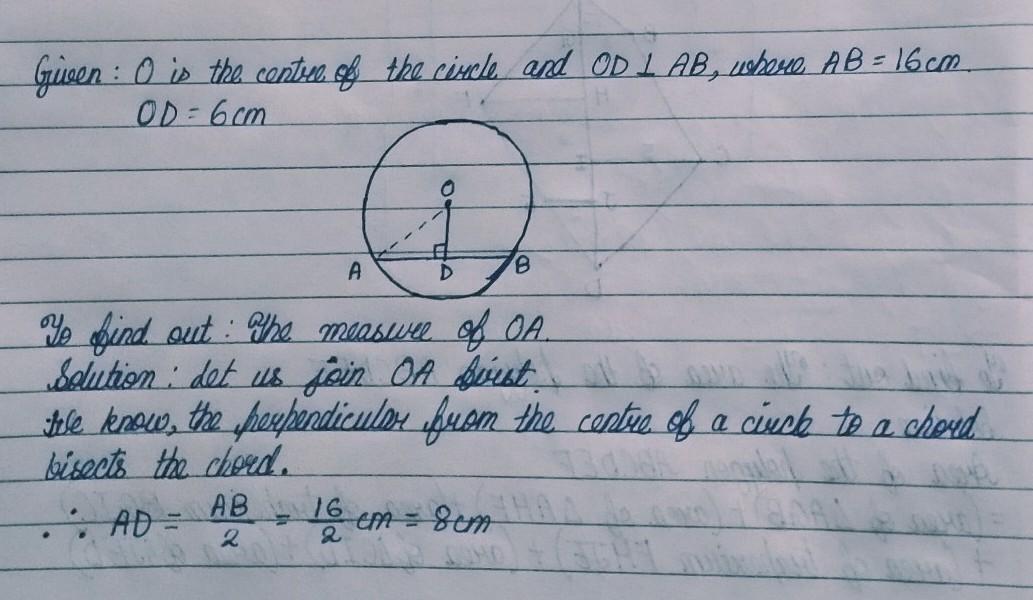 Given : O is the centre of the circle and OD ⊥ AB, where AB = 16cm.
OD = 6cm
O
A D B
To find out : The measure of OA.
Solution : Let us join OA first.
We know, the perpendicular from the centre of a circle to a chord
bisects the chord.
∴ AD = AB/2 = 16/2 cm = 8cm